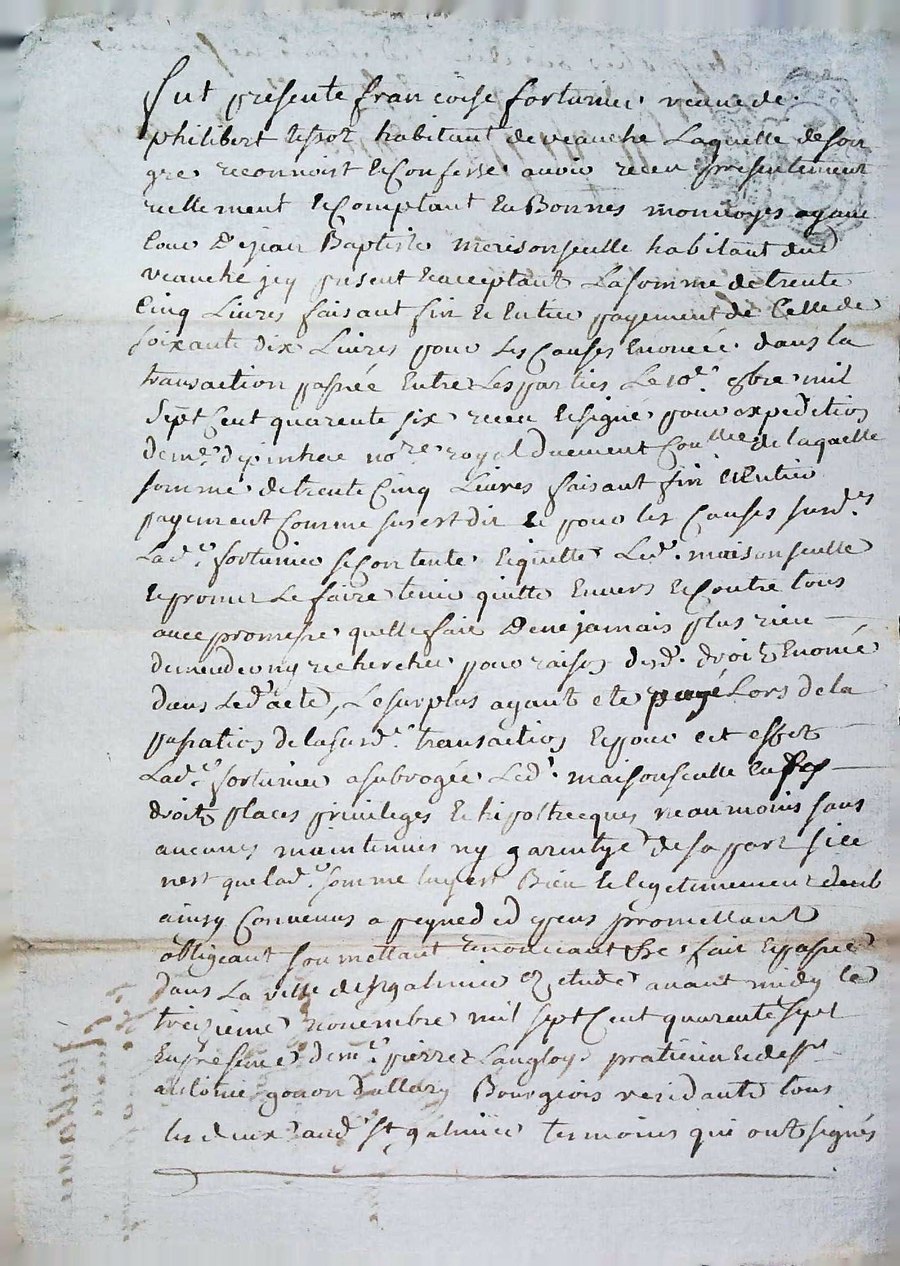 fut presente francoise fortunier veuve de
philibert tissot habitant de veauche Laquelle de son
gre reconnoist & Confesse avoir receu presentement
reellement & Comptant En Bonnes monnoyes ayant
Cour De jean Baptiste maisonseulle habitant dud
veauche icy present & acceptant La somme de trente
Cinq Livres faisant fin & Entier payement de Celle de
soixante dix Livres pour Les Causes Enoncée dans la
transaction passée Entre Les parties Le 10e. 8bre mil
Sept Cent quarente six receu & signé pour expedition
de me. no.re royal duement Con.llee de laquelle
somme de trente Cinq Livres faisant fin & Entier
payement Comme sus est dit & pour les Causes susd.s
Lad.e fortunier se Contente & quitte Led. maisonseulle
& promet Le faire tenir quitte Envers & Contre tous
avec promesse quelle fait De ne jamais plus rien
demander ny rechercher pour raison desd. droits Enoncé
dans Led acte, Le surplus ayant ete payé Lors de la
passation de la susd.e transaction & pour cet effet
Lad.e fortunier a subrogée Led. maisonseulle En ses
droits places privileges & hipotheques neanmoins sans
aucunes maintenues ny garentye de sa part si ce
nest que lad.e somme luy est Bien & legitimement deub
ainsy Convenus a peyne d d promettant
obligeant soumettant renonciant &c fait & passé
Dans La ville de st galmier & etude avant midy le
treizieme novembre mil sept Cent quarente sept
En presence de me. pierre Langloys praticien & de sr
antoine gonon Bourgeois residants tous
les deux aud. st galmier temoins qui ont signés